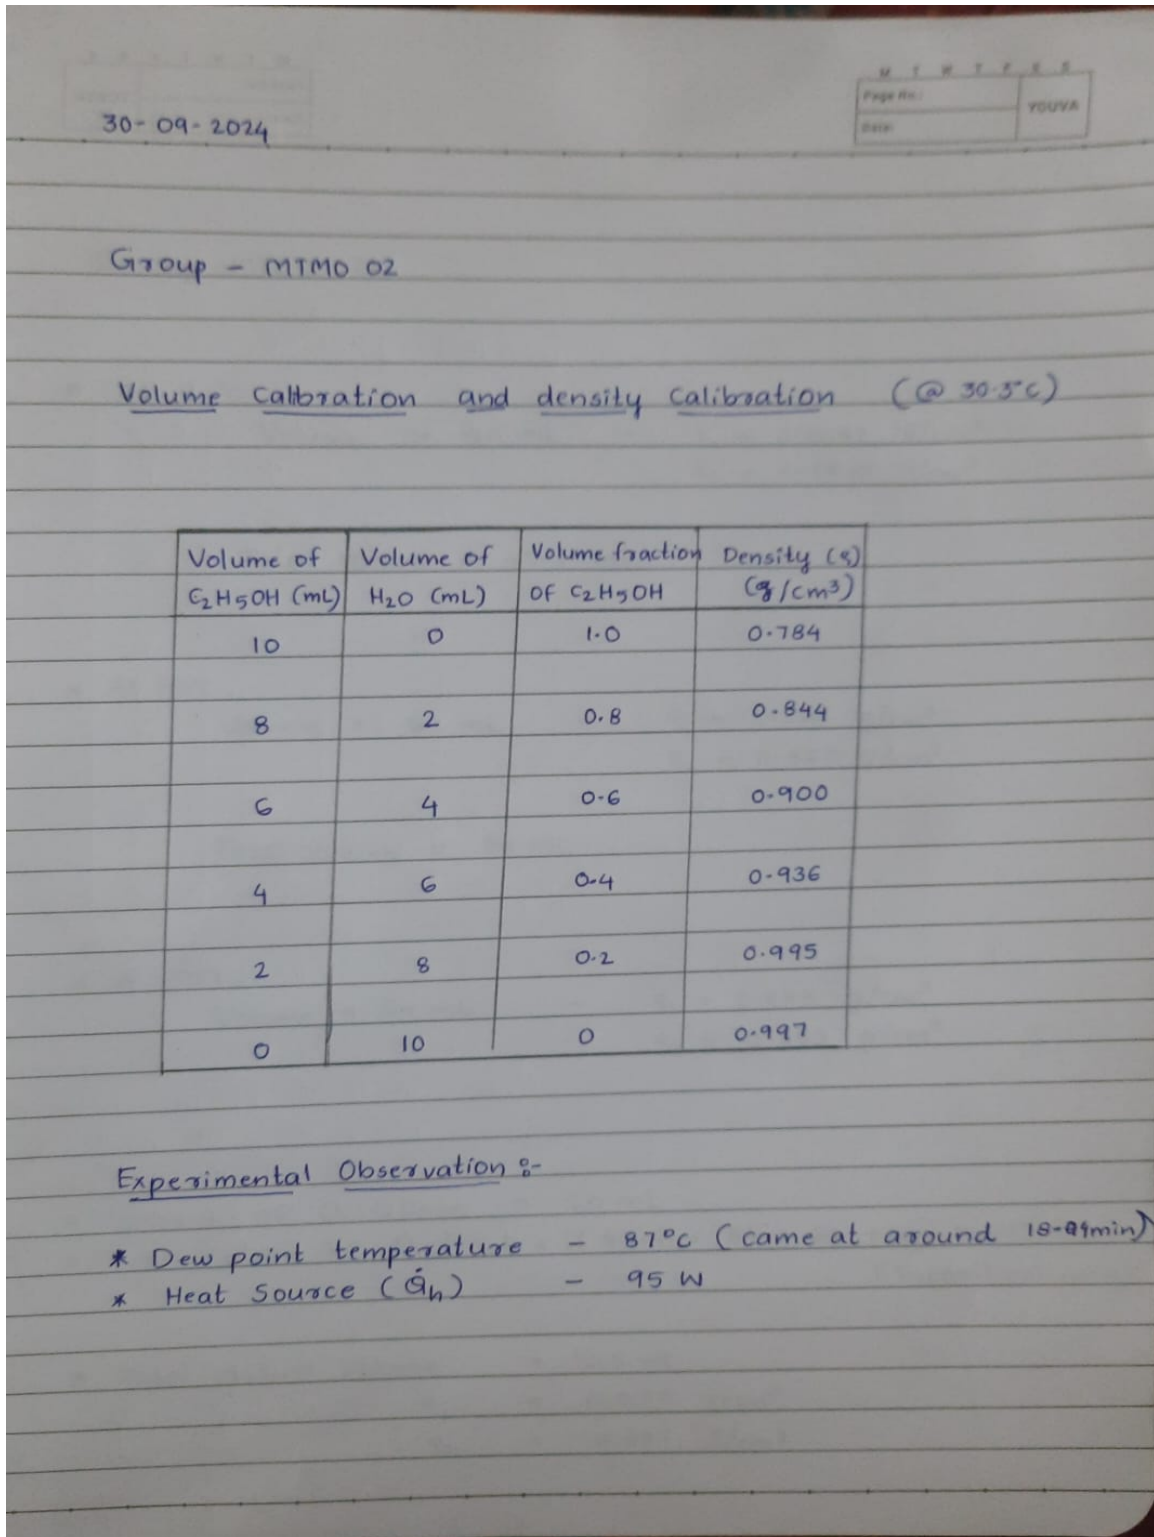 M T W T F S S
Page No.:
YOUVA
Date:
30-09-2024
Group - MTMO 02
Volume Calibration and density Calibration (@ 30.5°C)
Volume of C2H5OH (mL) Volume of H2O (mL) Volume fraction OF C2H5OH Density (ρ) (g/cm³)
10 0 1.0 0.784
8 2 0.8 0.844
6 4 0.6 0.900
4 6 0.4 0.936
2 8 0.2 0.995
0 10 0 0.997
Experimental Observation :-
* Dew point temperature - 87°C (came at around min)
* Heat Source (Q̇h) - 95 W